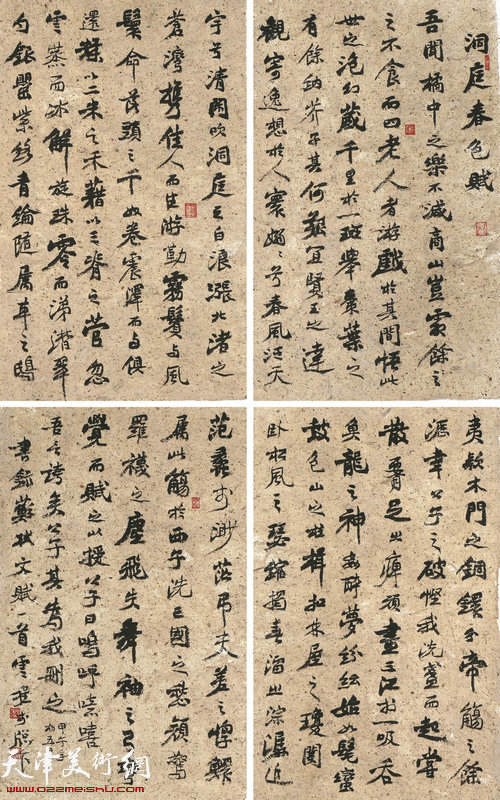 洞庭春色賦
吾聞橘中之樂不減商山豈霜餘之
之不食而四老人者游戲於其間悟此
世之泡幻藏千里於一斑舉棗葉之
有餘納芥子其何艱宜賢王之達
觀寄逸想於人寰嫋嫋兮春風泛天
宇兮清閑吹洞庭之白浪漲北渚之
蒼灣攜佳人而往游勤霧鬢与風
鬟命黃頭之千奴卷震澤而与俱
還糅以二米之禾藉以三脊之菅忽
雲蒸而冰解旋珠零而涕潸翠
勺銀罌紫絡青綸隨屬車之鴟
夷款木門之銅鐶分帝觴之餘
瀝幸公子之破慳我洗盞而起嘗
散腰足之痺頑盡三江於一吸吞
魚龍之神姦醉夢紛紜始如髦蠻
鼓包山之桂楫扣林屋之瓊關
臥松風之瑟縮揭春溜之淙潺追
范蠡於渺茫吊夫差之惸鰥
屬此觴於西子洗亡國之愁顏驚
羅襪之塵飛失舞袖之弓彎
覺而賦之以授公子曰嗚呼噫嘻
吾言誇矣公子其為我刪之甲午
書錄蘇軾文賦一首雲
天津美術網
www.022meishu.com